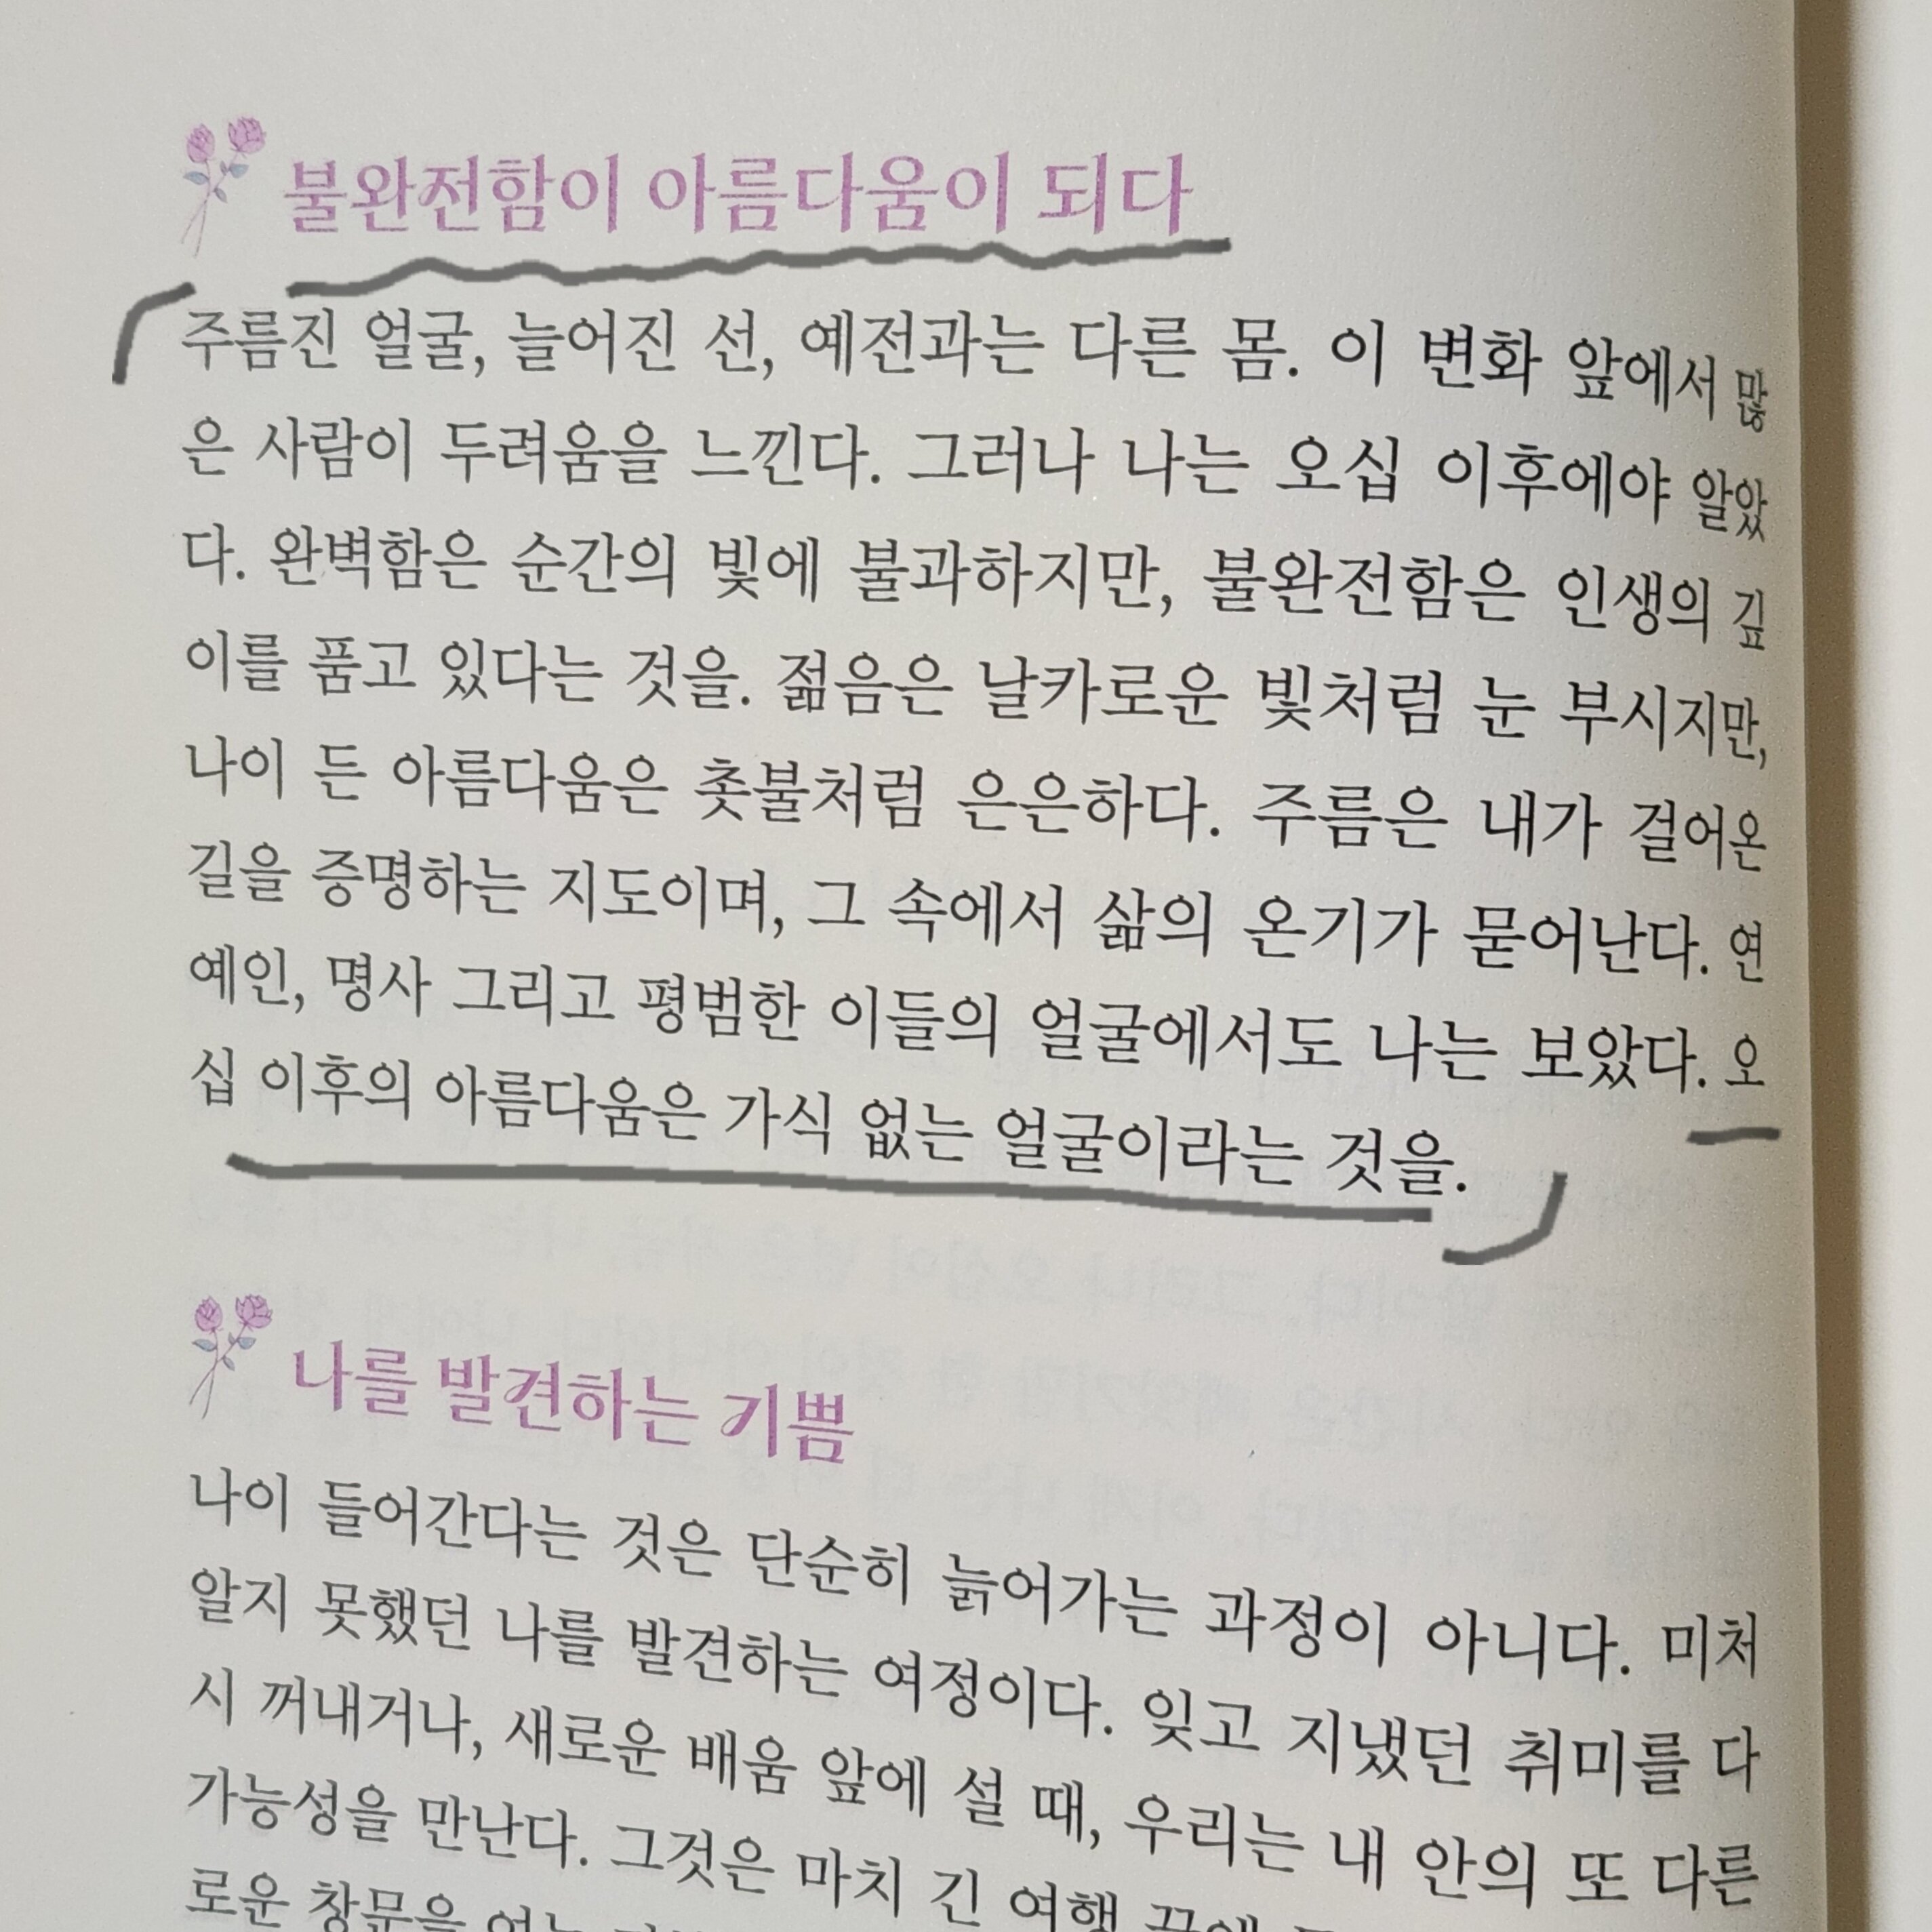 불완전함이 아름다움이 되다
주름진 얼굴, 늘어진 선, 예전과는 다른 몸. 이 변화 앞에서 많
은 사람이 두려움을 느낀다. 그러나 나는 오십 이후에야 알았
다. 완벽함은 순간의 빛에 불과하지만, 불완전함은 인생의 깊
이를 품고 있다는 것을. 젊음은 날카로운 빛처럼 눈 부시지만,
나이 든 아름다움은 촛불처럼 은은하다. 주름은 내가 걸어온
길을 증명하는 지도이며, 그 속에서 삶의 온기가 묻어난다. 연
예인, 명사 그리고 평범한 이들의 얼굴에서도 나는 보았다. 오
십 이후의 아름다움은 가식 없는 얼굴이라는 것을.
나를 발견하는 기쁨
나이 들어간다는 것은 단순히 늙어가는 과정이 아니다. 미처
알지 못했던 나를 발견하는 여정이다. 잊고 지냈던 취미를 다
시 꺼내거나, 새로운 배움 앞에 설 때, 우리는 내 안의 또 다른
가능성을 만난다. 그것은 마치 긴 여행
로운 창문을